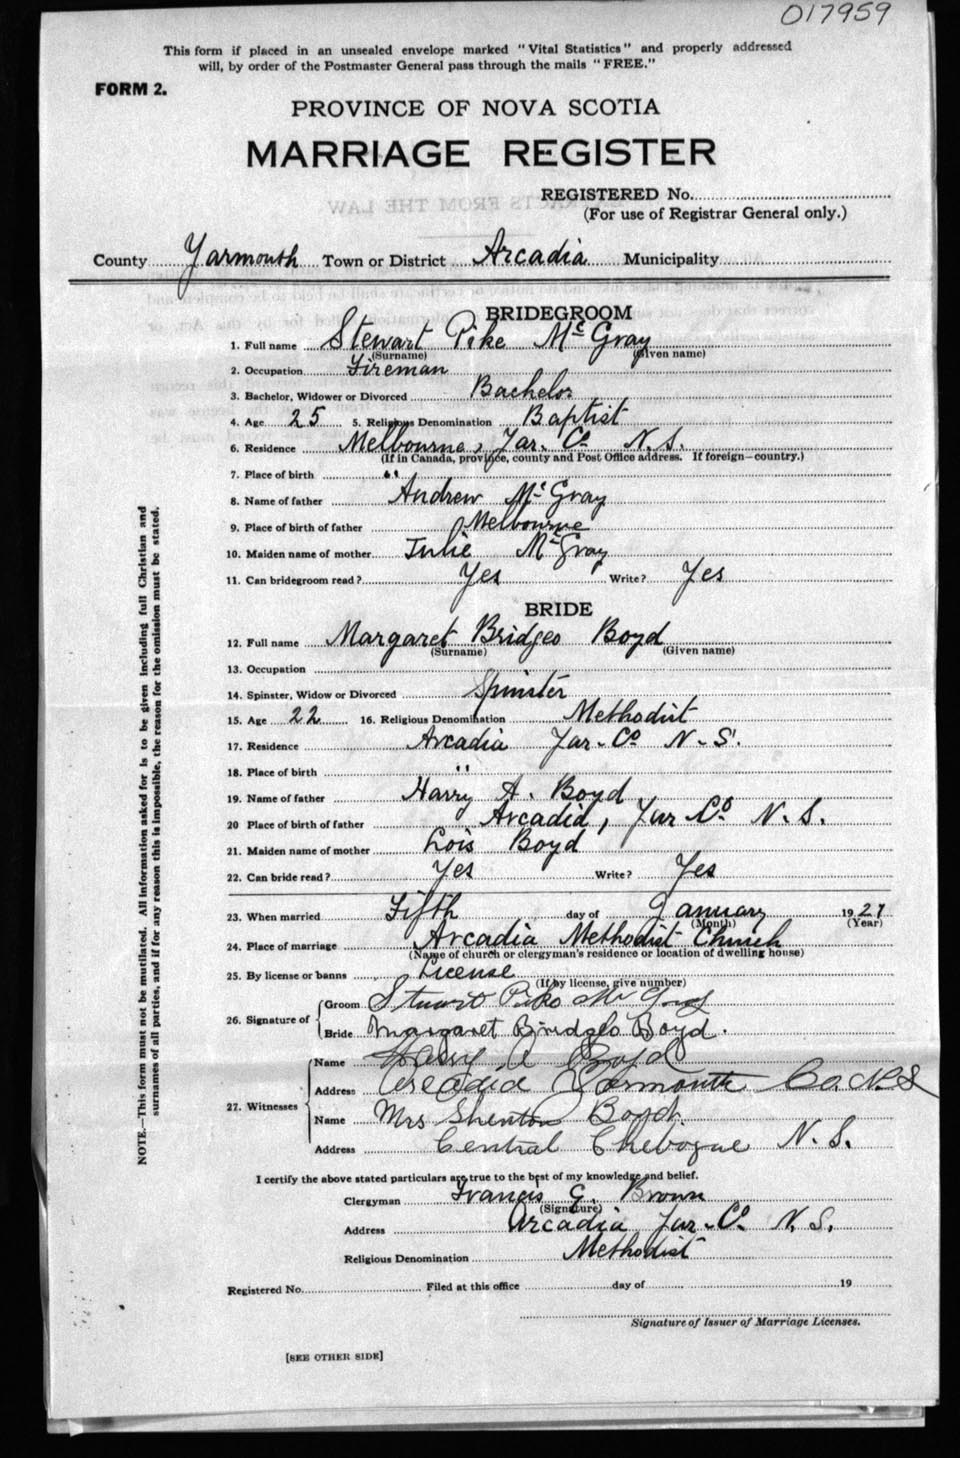 017959
This form if placed in an unsealed envelope marked "Vital Statistics" and properly addressed
will, by order of the Postmaster General pass through the mails "FREE."
FORM 2.
PROVINCE OF NOVA SCOTIA
MARRIAGE REGISTER
REGISTERED No.
(For use of Registrar General only.)
County Yarmouth Town or District Arcadia Municipality
BRIDEGROOM
1. Full name Stewart Pike McGray
(Surname) (Given name)
2. Occupation Fireman
3. Bachelor, Widower or Divorced Bachelor
4. Age 25 5. Religious Denomination Baptist
6. Residence Melbourne, Yar. Co. N.S.
(If in Canada, province, county and Post Office address. If foreign—country.)
7. Place of birth "
8. Name of father Andrew McGray
9. Place of birth of father Melbourne
10. Maiden name of mother Julie McGray
11. Can bridegroom read? Yes Write? Yes
BRIDE
12. Full name Margaret Bridgeo Boyd
(Surname) (Given name)
13. Occupation
14. Spinster, Widow or Divorced Spinster
15. Age 22 16. Religious Denomination Methodist
17. Residence Arcadia Yar. Co. N.S.
18. Place of birth "
19. Name of father Harry A. Boyd
20 Place of birth of father Arcadia, Yar Co N.S.
21. Maiden name of mother Lois Boyd
22. Can bride read? Yes Write? Yes
23. When married Fifth day of January 1921
(Month) (Year)
24. Place of marriage Arcadia Methodist Church
(Name of church or clergyman's residence or location of dwelling house)
25. By license or banns License
(If by license, give number)
26. Signature of Groom Stuart Pike McGray
Bride Margaret Bridgeo Boyd.
27. Witnesses Name Harry A Boyd
Address Arcadia Yarmouth Co. N.S
Name Mrs Shenton Boyd
Address Central Chebogue N.S.
I certify the above stated particulars are true to the best of my knowledge and belief.
Clergyman Francis E. Brown
(Signature)
Address Arcadia Yar. Co. N.S.
Religious Denomination Methodist
Registered No. Filed at this office day of 19
Signature of Issuer of Marriage Licenses.
[SEE OTHER SIDE]
NOTE.—This form must not be mutilated. All information asked for is to be given including full Christian and
surnames of all parties, and if for any reason this is impossible, the reason for the omission must be stated.